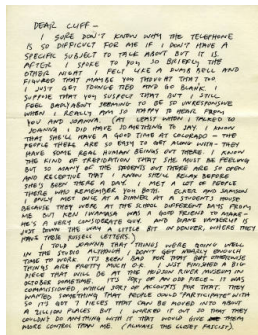 DEAR CLIFF –
I SURE DON'T KNOW WHY THE TELEPHONE
IS SO DIFFICULT FOR ME IF I DON'T HAVE A
SPECIFIC SUBJECT TO TALK ABOUT BUT IT IS
AFTER I SPOKE TO YOU SO BRIEFLY THE
OTHER NIGHT I FELT LIKE A DUMB BELL AND
FIGURED THAT MAYBE YOU THOUGHT THAT TOO
I JUST GET TONGUE TIED AND GO BLANK. I
SUPPOSE THAT YOU SUSPECT THAT BUT I STILL
FEEL BADLY ABOUT SEEMING TO BE SO UNRESPONSIVE
WHEN I REALLY AM SO HAPPY TO HEAR FROM
YOU AND JOANNA. (AT LEAST WHEN I TALKED TO
JOANNA I DID HAVE SOMETHING TO SAY) I KNOW
THAT SHE'LL HAVE A GOOD TIME AT COLORADO – THE
PEOPLE THERE ARE SO EASY TO GET ALONG WITH – THEY
HAVE SOME REAL HUMAN BEINGS OUT THERE. I KNOW
THE KIND OF TREPIDATION THAT SHE MUST BE FEELING
BUT SO MANY OF THE STUDENTS OUT THERE ARE SO OPEN
AND RECEPTIVE THAT I KNOW SHE'LL RELAX BEFORE
SHE'S BEEN THERE A DAY. I MET A LOT OF PEOPLE
THERE WHO REMEMBER YOU BOTH. ELKER AND SAMSON
I ONLY MET ONCE AT A DINNER AT A STUDENT'S HOUSE
BECAUSE THEY WERE AT THE SCHOOL DIFFERENT DAYS FROM
ME BUT KEN IWAMASA WAS A GOOD FRIEND TO MAKE –
HE'S A VERY CONSIDERATE GUY AND DIANE VANDERLIP IS
JUST DOWN THE WAY A LITTLE BIT IN DENVER, WHERE THEY
HAVE THEIR LETTERS.
I TOLD JOANNA THAT THINGS WERE GOING WELL
IN THE STUDIO ALTHOUGH I DON'T GET NEARLY ENOUGH
TIME TO WORK. IT'S BEEN BAD FOR THAT BUT OTHERWISE
THINGS ARE PRETTY MUCH OK. I JUST FINISHED A BIG
PIECE THAT WILL BE AT THE HUDSON RIVER MUSEUM IN
OCTOBER SOMETIME. IT'S SORT OF AN ODD PIECE. IT WAS
COMMISSIONED WHICH SORT OF ACCOUNTS FOR THAT. THEY
WANTED SOMETHING THAT PEOPLE COULD "PARTICIPATE WITH"
SO IT'S GOT 7 PIECES THAT CAN BE MOVED INTO ABOUT
A ZILLION PLACES BUT I WORKED IT OUT SO THAT THEY
COULDN'T DO ANYTHING WITH IT THAT WOULD GIVE THEM
MORE CONTROL THAN ME. (ALWAYS THE CLOSET FASCIST).